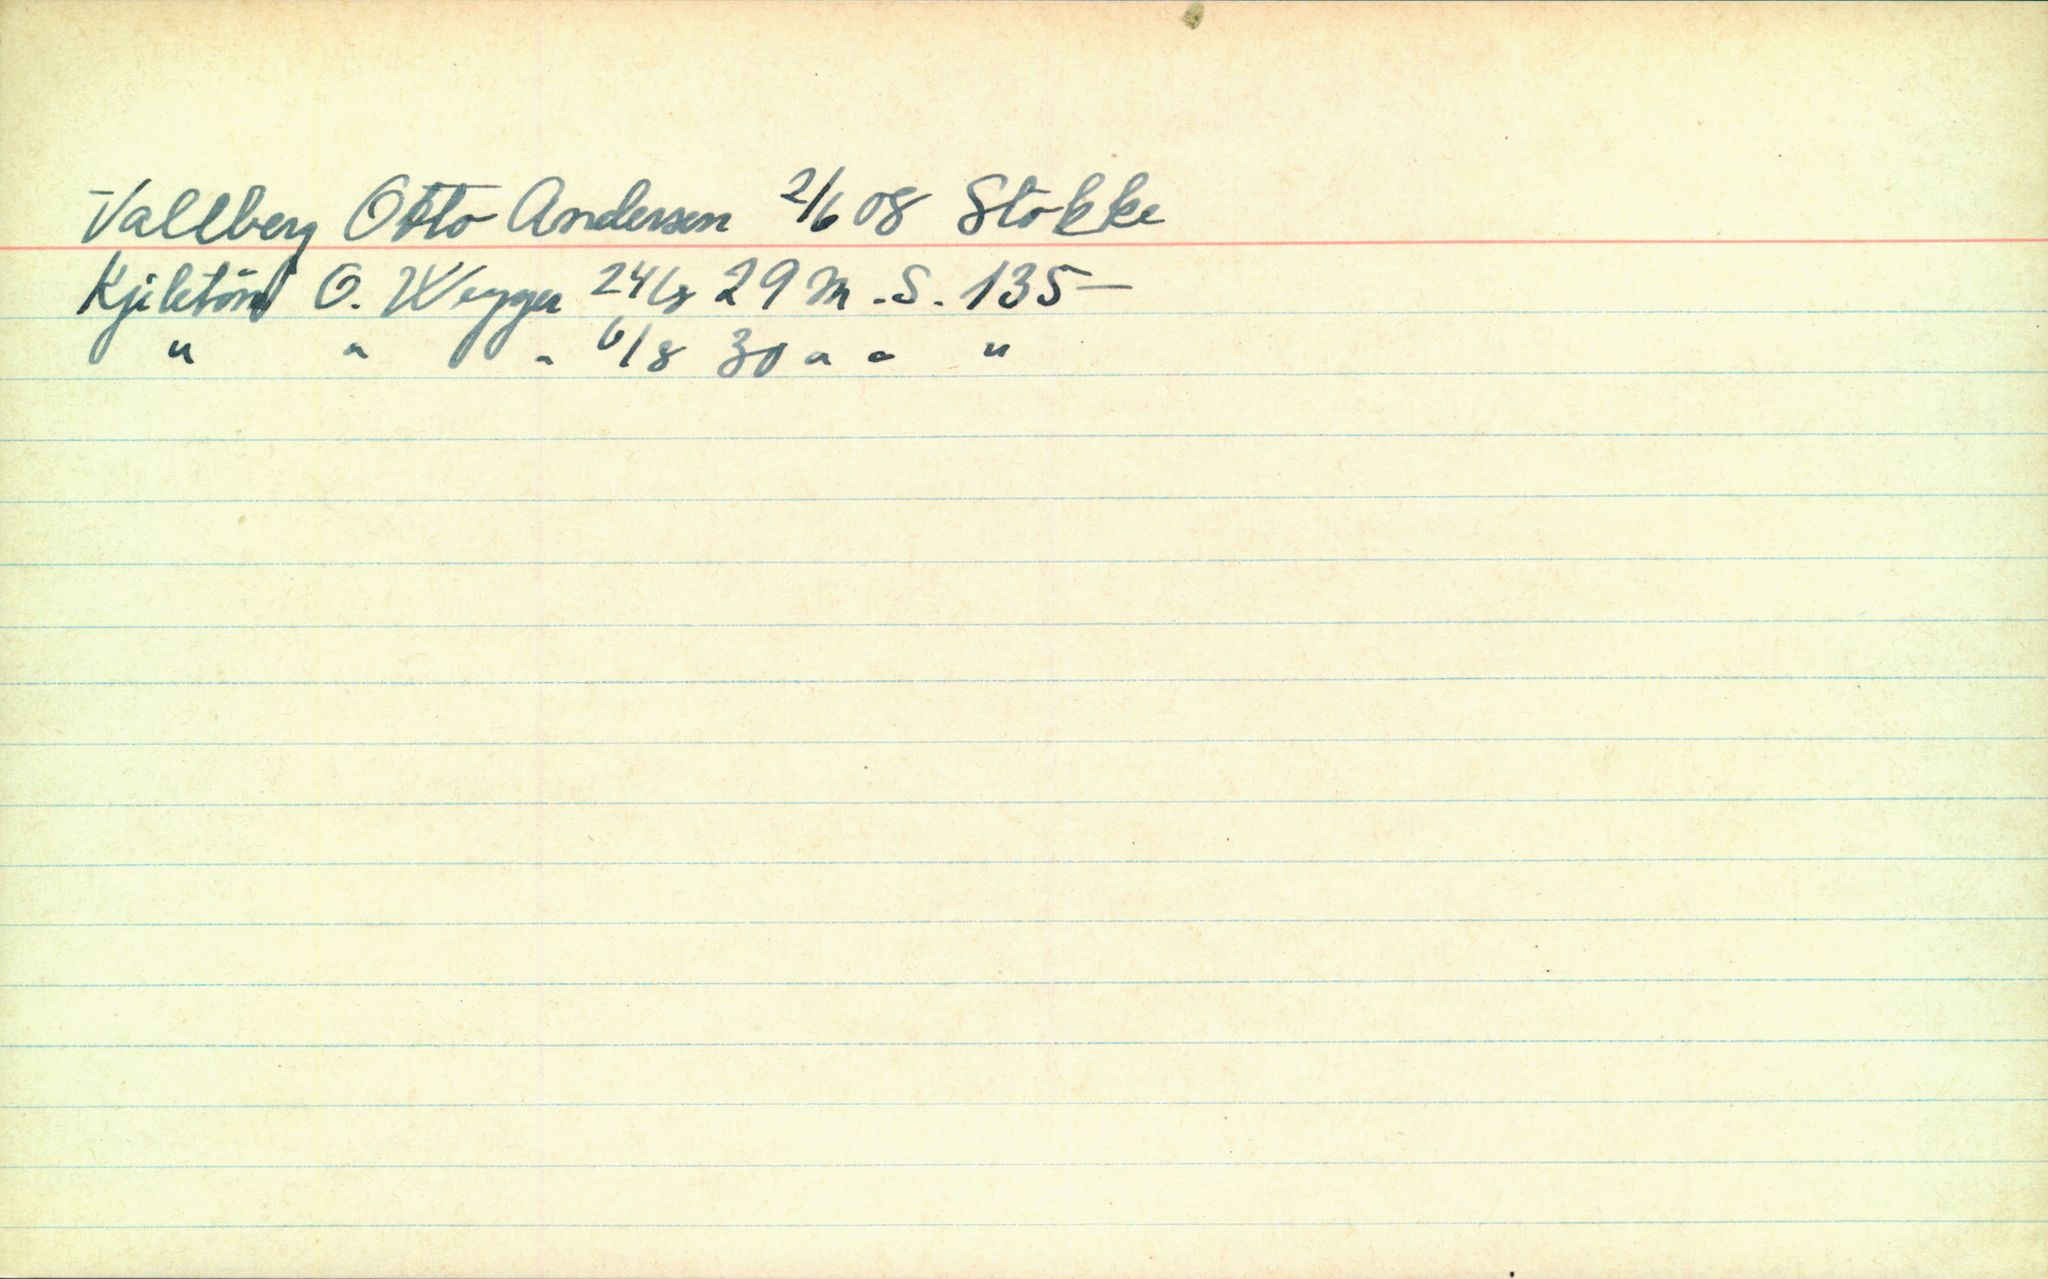 Vallberg Otto Andersen 2/6 08 Stokke
O. Wegger 24/8 29 M.S. 135-
" " " 6/8 30 " " "